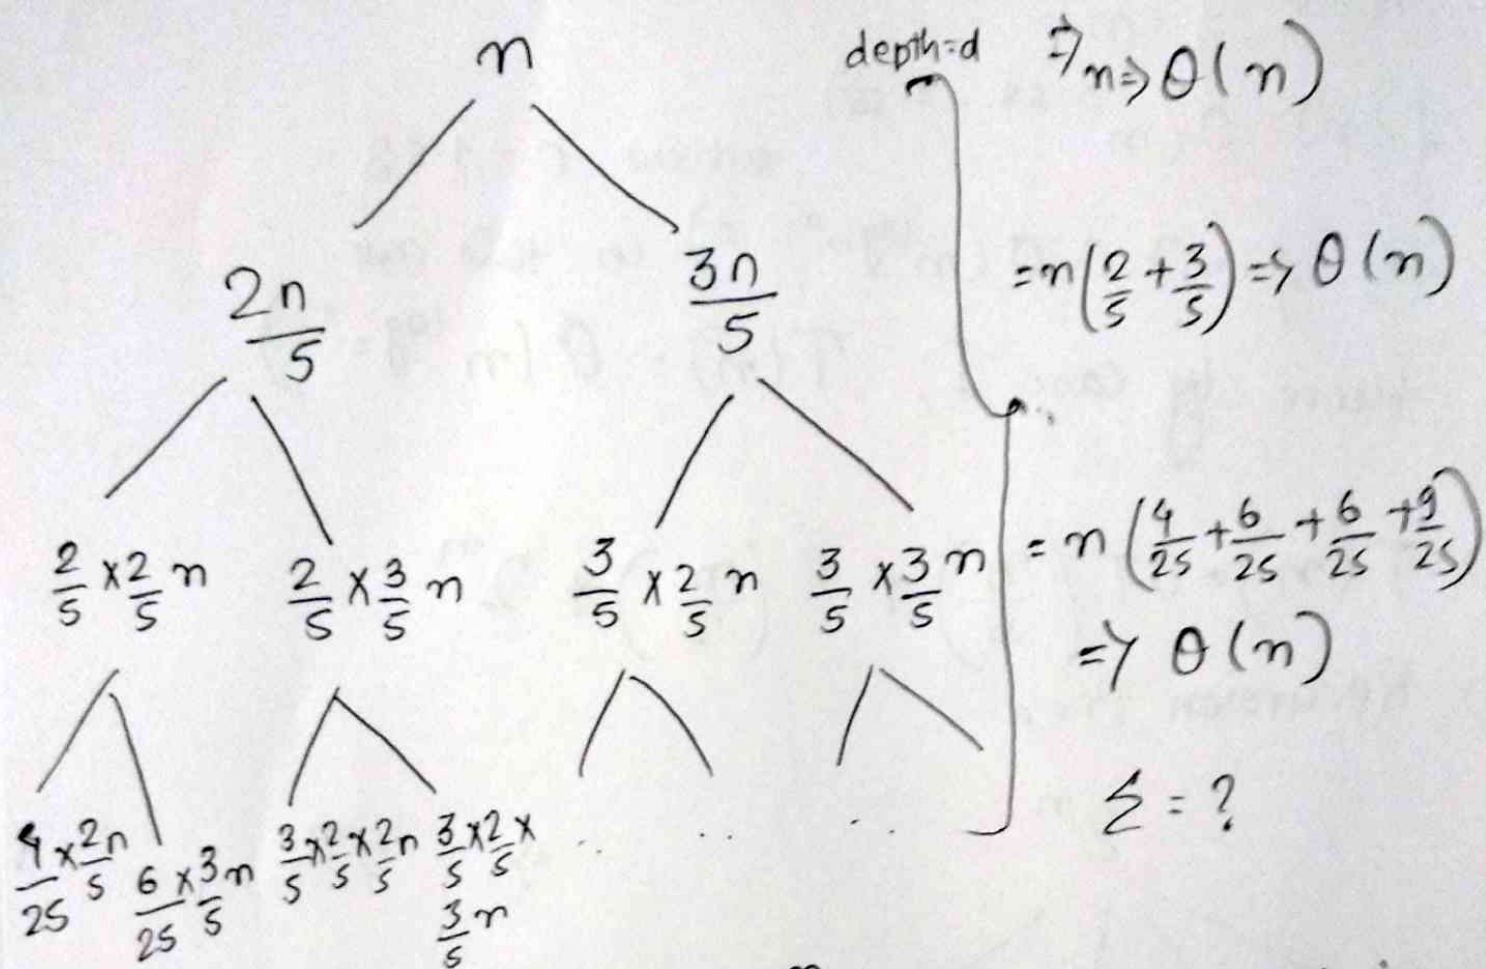 n
depth=d ⇒ n ⇒ θ(n)
2n/5 3n/5 = n(2/5 + 3/5) ⇒ θ(n)
2/5 × 2/5 n 2/5 × 3/5 n 3/5 × 2/5 n 3/5 × 3/5 n = n(4/25 + 6/25 + 6/25 + 9/25)
⇒ θ(n)
Σ = ?
4/25 × 2n/5 6/25 × 3/5 n 3/5 × 2/5 × 2/5 n 3/5 × 2/5 ×
3/5 n